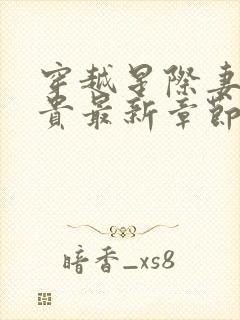 穿越星際妻
貴最新章節
暗香_xs8